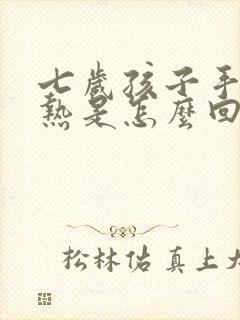 七歲孩子手
熱是怎麼回
松林佑真上大